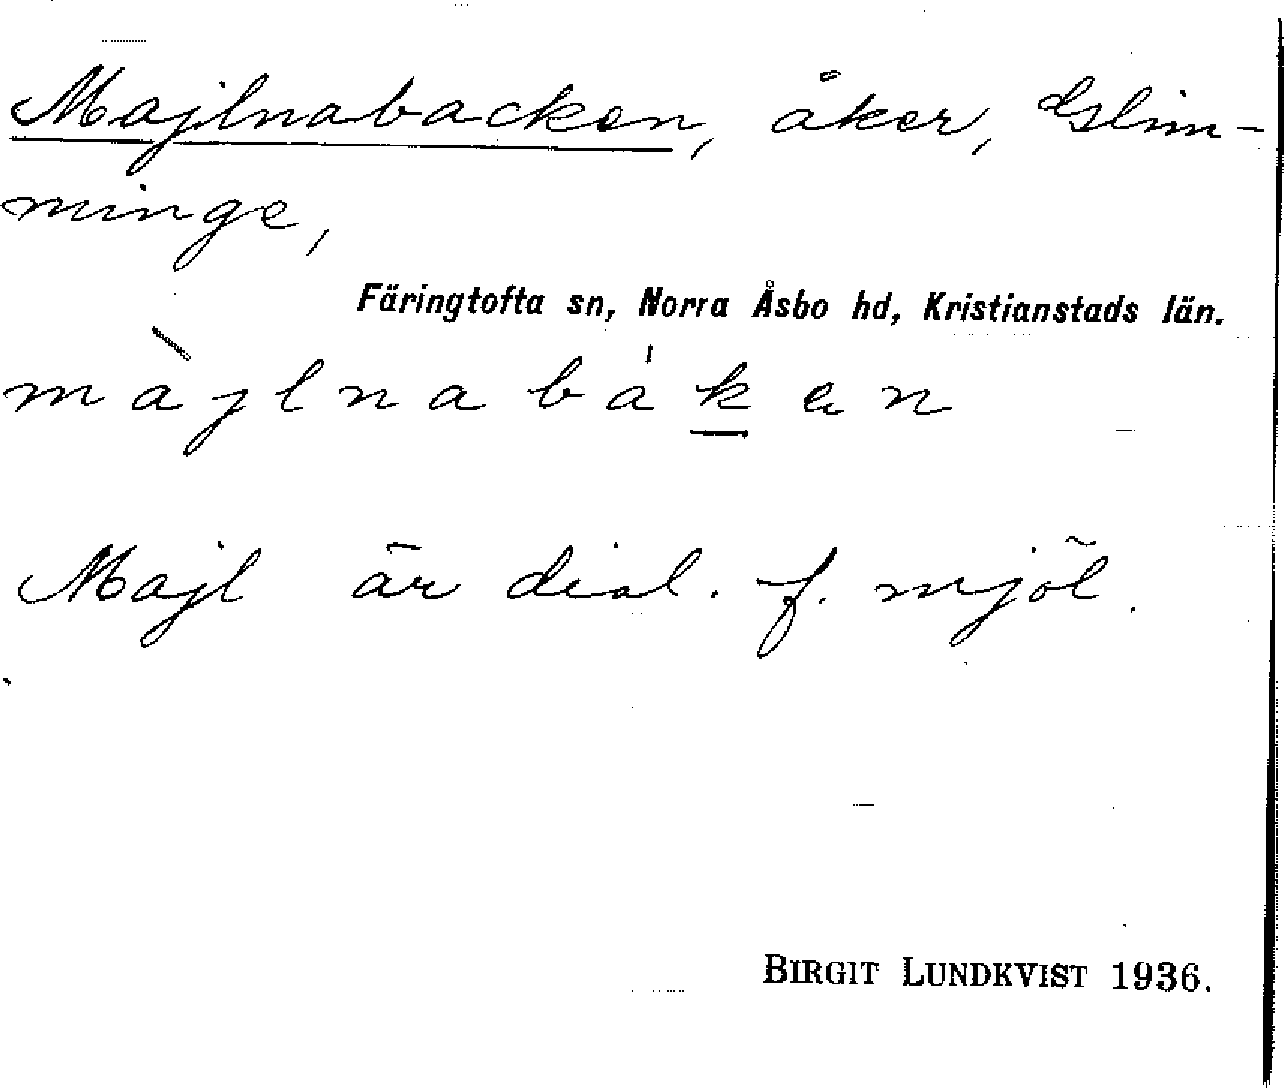 Majlnabacken, åker, Glim-
minge,
Färingtofta sn, Norra Åsbo hd, Kristianstads län.
màjlnabáken
Majl är dial. f. mjöl.
BIRGIT LUNDKVIST 1936.